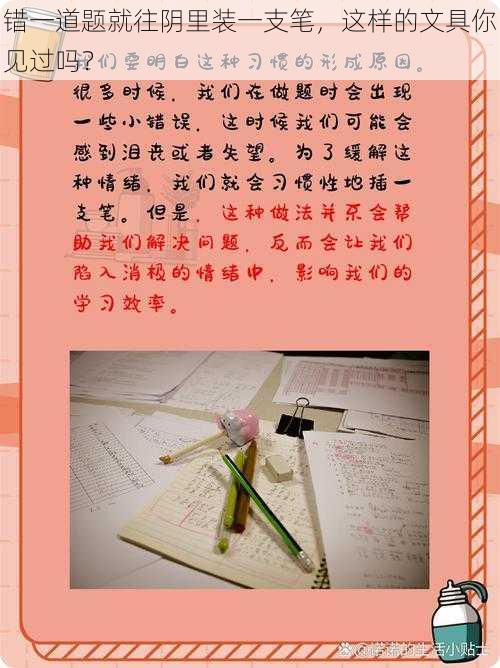 错一道题就往阴里装一支笔，这样的文具你
见过吗？
我们要明白这种习惯的形成原因。
很多时候，我们在做题时会出现
一些小错误，这时候我们可能会
感到沮丧或者失望。为了缓解这
种情绪，我们就会习惯性地插一
支笔。但是，这种做法并不会帮
助我们解决问题，反而会让我们
陷入消极的情绪中，影响我们的
学习效率。
@诺诺的生活小贴士